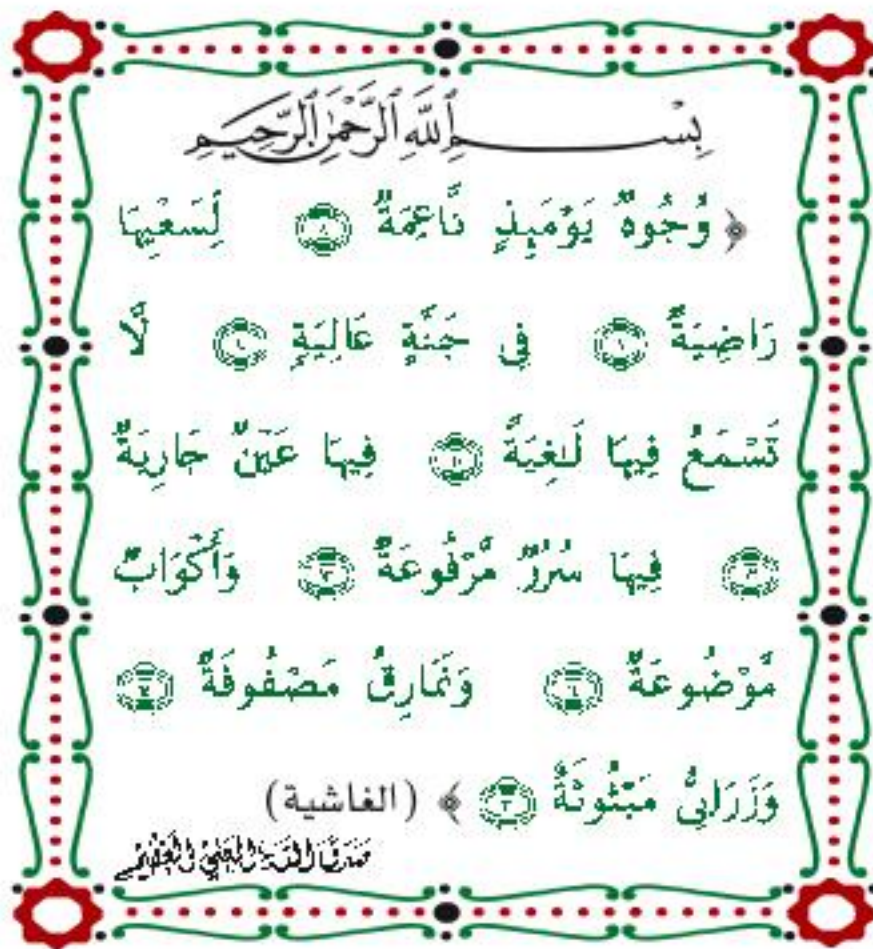 بِسْمِ ٱللَّهِ ٱلرَّحْمَٰنِ ٱلرَّحِيمِ
﴿ وُجُوهٌ يَوْمَئِذٍ نَّاعِمَةٌ ۝٨ لِّسَعْيِهَا
رَاضِيَةٌ ۝٩ فِي جَنَّةٍ عَالِيَةٍ ۝١٠ لَّا
تَسْمَعُ فِيهَا لَٰغِيَةً ۝١١ فِيهَا عَيْنٌ جَارِيَةٌ
۝١٢ فِيهَا سُرُرٌ مَّرْفُوعَةٌ ۝١٣ وَأَكْوَابٌ
مَّوْضُوعَةٌ ۝١٤ وَنَمَارِقُ مَصْفُوفَةٌ ۝١٥
وَزَرَابِيُّ مَبْثُوثَةٌ ۝١٦ ﴾ (الغاشية)
صدق الله العلي العظيم